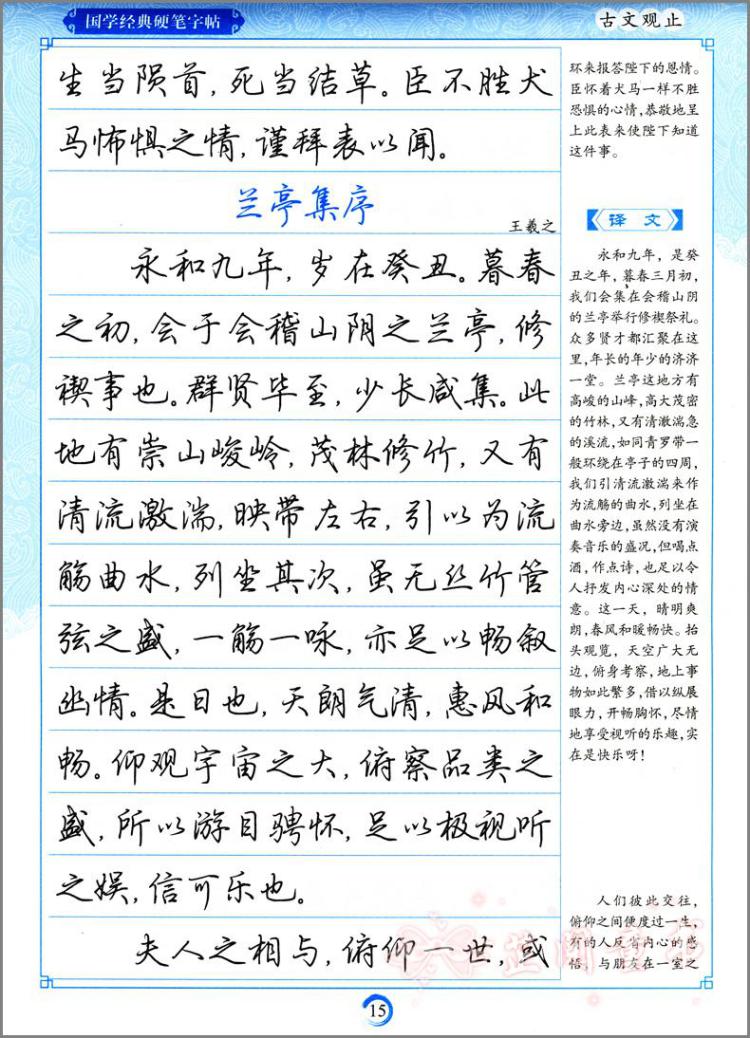 国学经典硬笔字帖
古文观止
生当陨首，死当结草。臣不胜犬
马怖惧之情，谨拜表以闻。
兰亭集序
王羲之
永和九年，岁在癸丑。暮春
之初，会于会稽山阴之兰亭，修
禊事也。群贤毕至，少长咸集。此
地有崇山峻岭，茂林修竹，又有
清流激湍，映带左右，引以为流
觞曲水，列坐其次，虽无丝竹管
弦之盛，一觞一咏，亦足以畅叙
幽情。是日也，天朗气清，惠风和
畅。仰观宇宙之大，俯察品类之
盛，所以游目骋怀，足以极视听
之娱，信可乐也。
夫人之相与，俯仰一世，或
环来报答陛下的恩情。
臣怀着犬马一样不胜
恐惧的心情，恭敬地呈
上此表来使陛下知道
这件事。
译文
永和九年，是癸
丑之年，暮春三月初，
我们会集在会稽山阴
的兰亭举行修禊祭礼。
众多贤才都汇聚在这
里，年长的年少的济济
一堂。兰亭这地方有
高峻的山峰，高大茂密
的竹林，又有清澈湍急
的溪流，如同青罗带一
般环绕在亭子的四周，
我们引清流激湍来作
为流觞的曲水，列坐在
曲水旁边，虽然没有演
奏音乐的盛况，但喝点
酒，作点诗，也足以令
人抒发内心深处的情
意。这一天，晴明爽
朗，春风和暖畅快。抬
头观览，天空广大无
边，俯身考察，地上事
物如此繁多，借以纵展
眼力，开畅胸怀，尽情
地享受视听的乐趣，实
在是快乐呀！
人们彼此交往，
俯仰之间便度过一生，
有的人反省内心的感
悟，与朋友在一室之
15